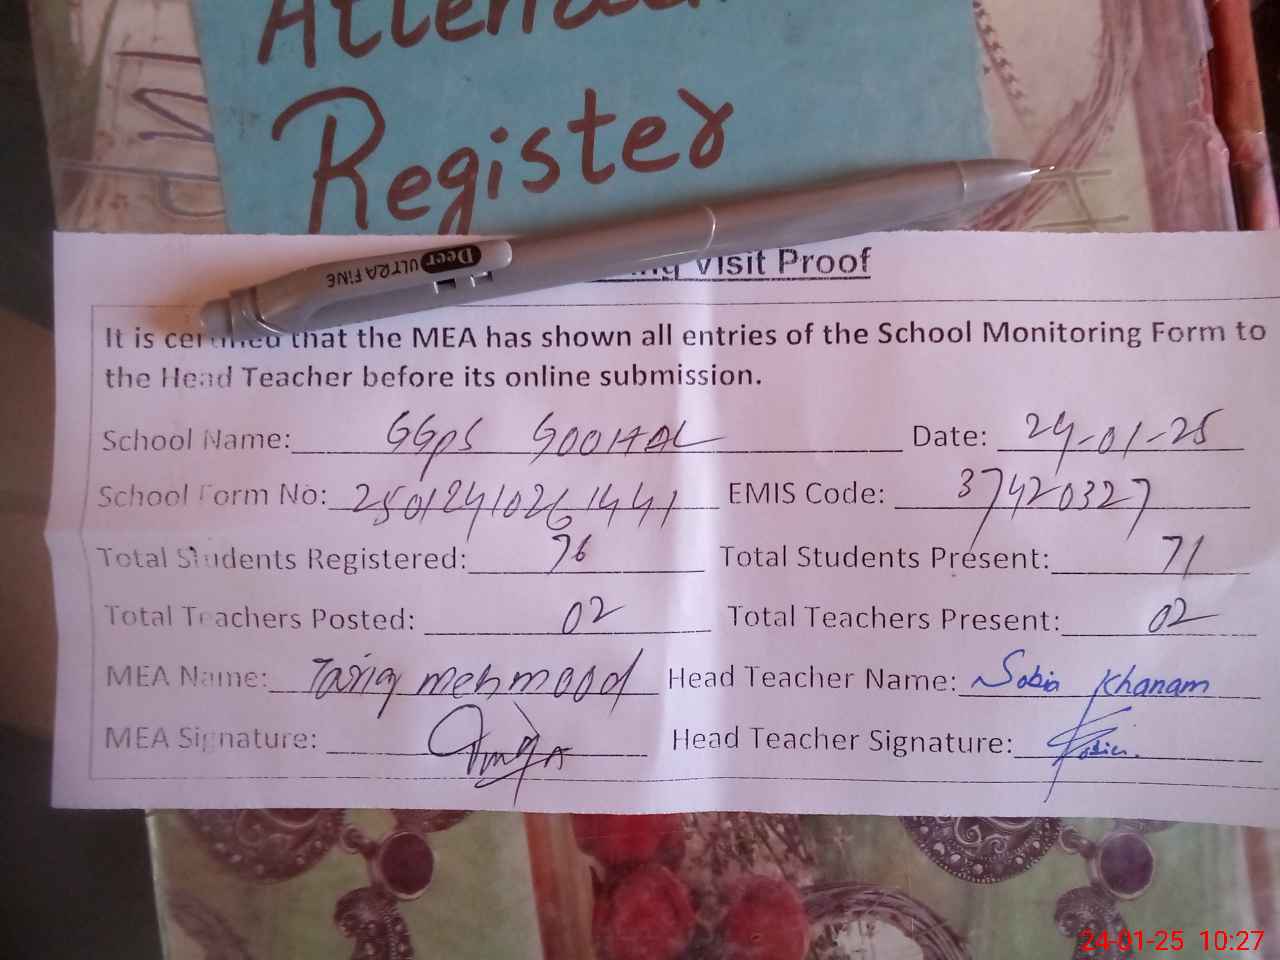 Register
Deer ULTRA FINE
Visit Proof
It is certified that the MEA has shown all entries of the School Monitoring Form to
the Head Teacher before its online submission.
School Name: GGPS GOOHAL Date: 24-01-25
School Form No: 25012410261441 EMIS Code: 37420327
Total Students Registered: 76 Total Students Present: 71
Total Teachers Posted: 02 Total Teachers Present: 02
MEA Name: Tariq mehmood Head Teacher Name: Sobia Khanam
MEA Signature: Head Teacher Signature:
24-01-25 10:27